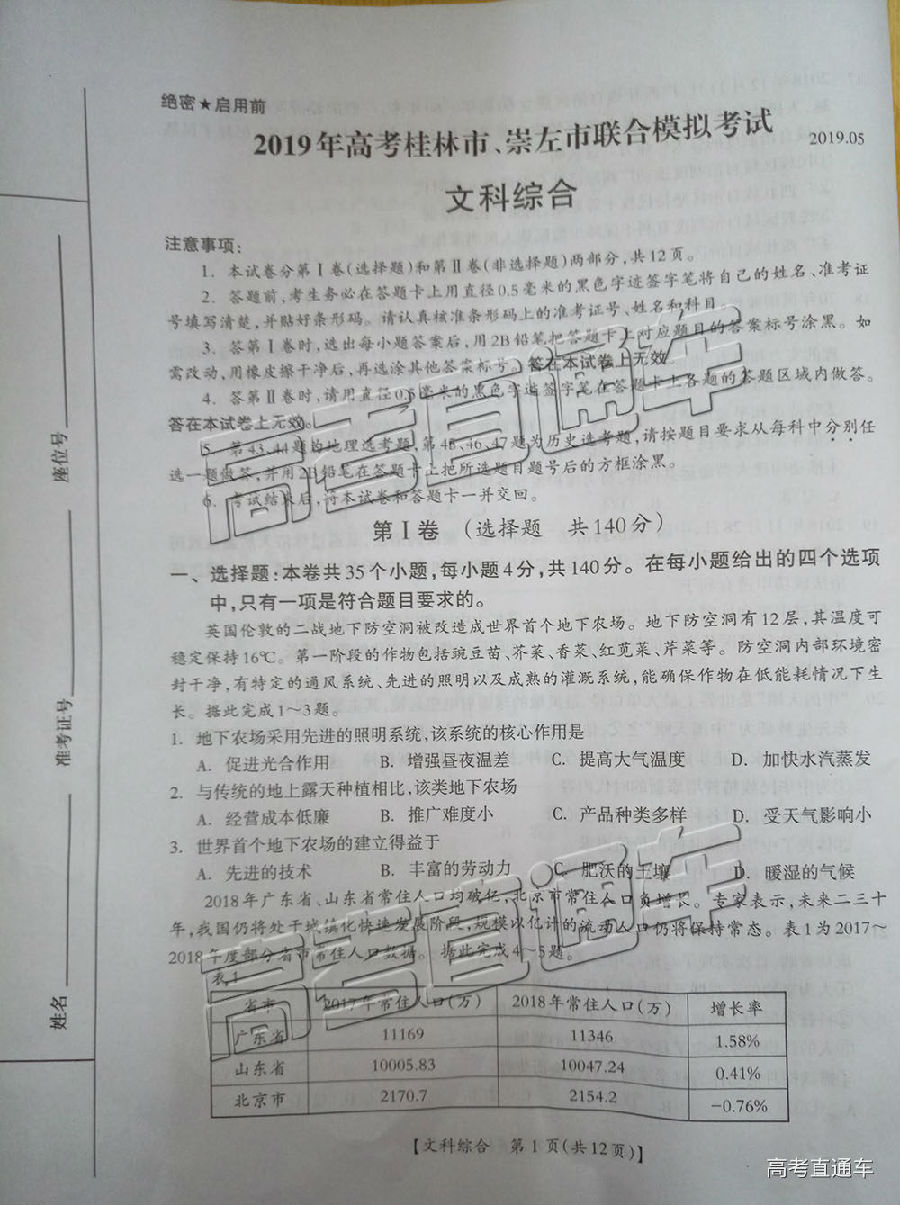 绝密★启用前
2019年高考桂林市、崇左市联合模拟考试
2019.05
文科综合
注意事项:
1. 本试卷分第Ⅰ卷(选择题)和第Ⅱ卷(非选择题)两部分,共12页。
2. 答题前,考生务必在答题卡上用直径0.5毫米的黑色字迹签字笔将自己的姓名、准考证
号填写清楚,并贴好条形码。请认真核准条形码上的准考证号、姓名和科目。
3. 答第Ⅰ卷时,选出每小题答案后,用2B铅笔把答题卡上对应题目的答案标号涂黑。如
需改动,用橡皮擦干净后,再选涂其他答案标号。答在本试卷上无效。
4. 答第Ⅱ卷时,请用直径0.5毫米的黑色字迹签字笔在答题卡上各题的答题区域内做答。
答在本试卷上无效。
5. 第43、44题为地理选考题,第45、46、47题为历史选考题,请按题目要求从每科中分别任
选一题做答,并用2B铅笔在答题卡上把所选题目题号后的方框涂黑。
6. 考试结束后,将本试卷和答题卡一并交回。
第Ⅰ卷 (选择题 共140分)
一、选择题:本卷共35个小题,每小题4分,共140分。在每小题给出的四个选项
中,只有一项是符合题目要求的。
英国伦敦的二战地下防空洞被改造成世界首个地下农场。地下防空洞有12层,其温度可
稳定保持16℃。第一阶段的作物包括豌豆苗、芥菜、香菜、红苋菜、芹菜等。防空洞内部环境密
封干净,有特定的通风系统、先进的照明以及成熟的灌溉系统,能确保作物在低能耗情况下生
长。据此完成1~3题。
1. 地下农场采用先进的照明系统,该系统的核心作用是
A. 促进光合作用 B. 增强昼夜温差 C. 提高大气温度 D. 加快水汽蒸发
2. 与传统的地上露天种植相比,该类地下农场
A. 经营成本低廉 B. 推广难度小 C. 产品种类多样 D. 受天气影响小
3. 世界首个地下农场的建立得益于
A. 先进的技术 B. 丰富的劳动力 C. 肥沃的土壤 D. 暖湿的气候
2018年广东省、山东省常住人口均破亿,北京市常住人口负增长。专家表示,未来二三十
年,我国仍将处于城镇化快速发展阶段,规模以亿计的流动人口仍将保持常态。表1为2017~
2018年度部分省市常住人口数据。据此完成4~5题。
表1
省市 2017年常住人口(万) 2018年常住人口(万) 增长率
广东省 11169 11346 1.58%
山东省 10005.83 10047.24 0.41%
北京市 2170.7 2154.2 -0.76%
【文科综合 第1页(共12页)】
座位号
准考证号
姓名
高考直通车
高考直通车
高考直通车